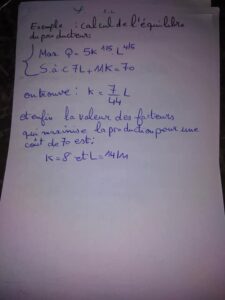 Exemple : calcul de l'équilibre
du producteur:
Max Q = 5K^1/5 L^4/5
S. à c 7L + 11K = 70
on trouve : K = 7/44 L
et enfin la valeur des facteurs
qui maximise la production pour une
coût de 70 est:
K = 8 et L =